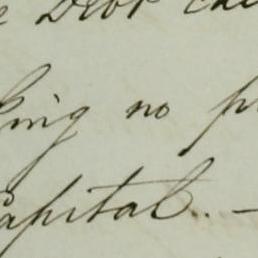 Debt
king no p
Capital. —